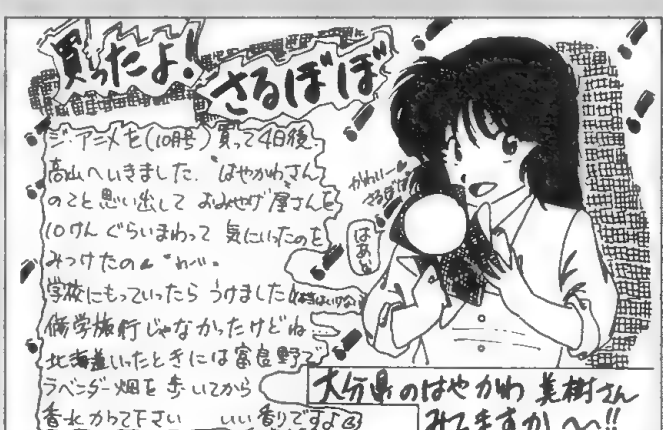 買ったよ!
さるぼぼ
ジ・アニメを(10月号)買って4日後、
高山へいきました. "はやかわさん"
のこと思い出して おみやげ屋さんを
10けん ぐらいまわって 気にいったのを
みつけたの
学校にもっていったら うけました
修学旅行じゃなかったけどね…
北海道いったときには富良野で
ラベンダー畑を歩いてから
香水かって下さい いい香りですよ
かわいー
さるぼぼ
はあい
大分県のはやかわ 美樹さん
みてますか〜!!